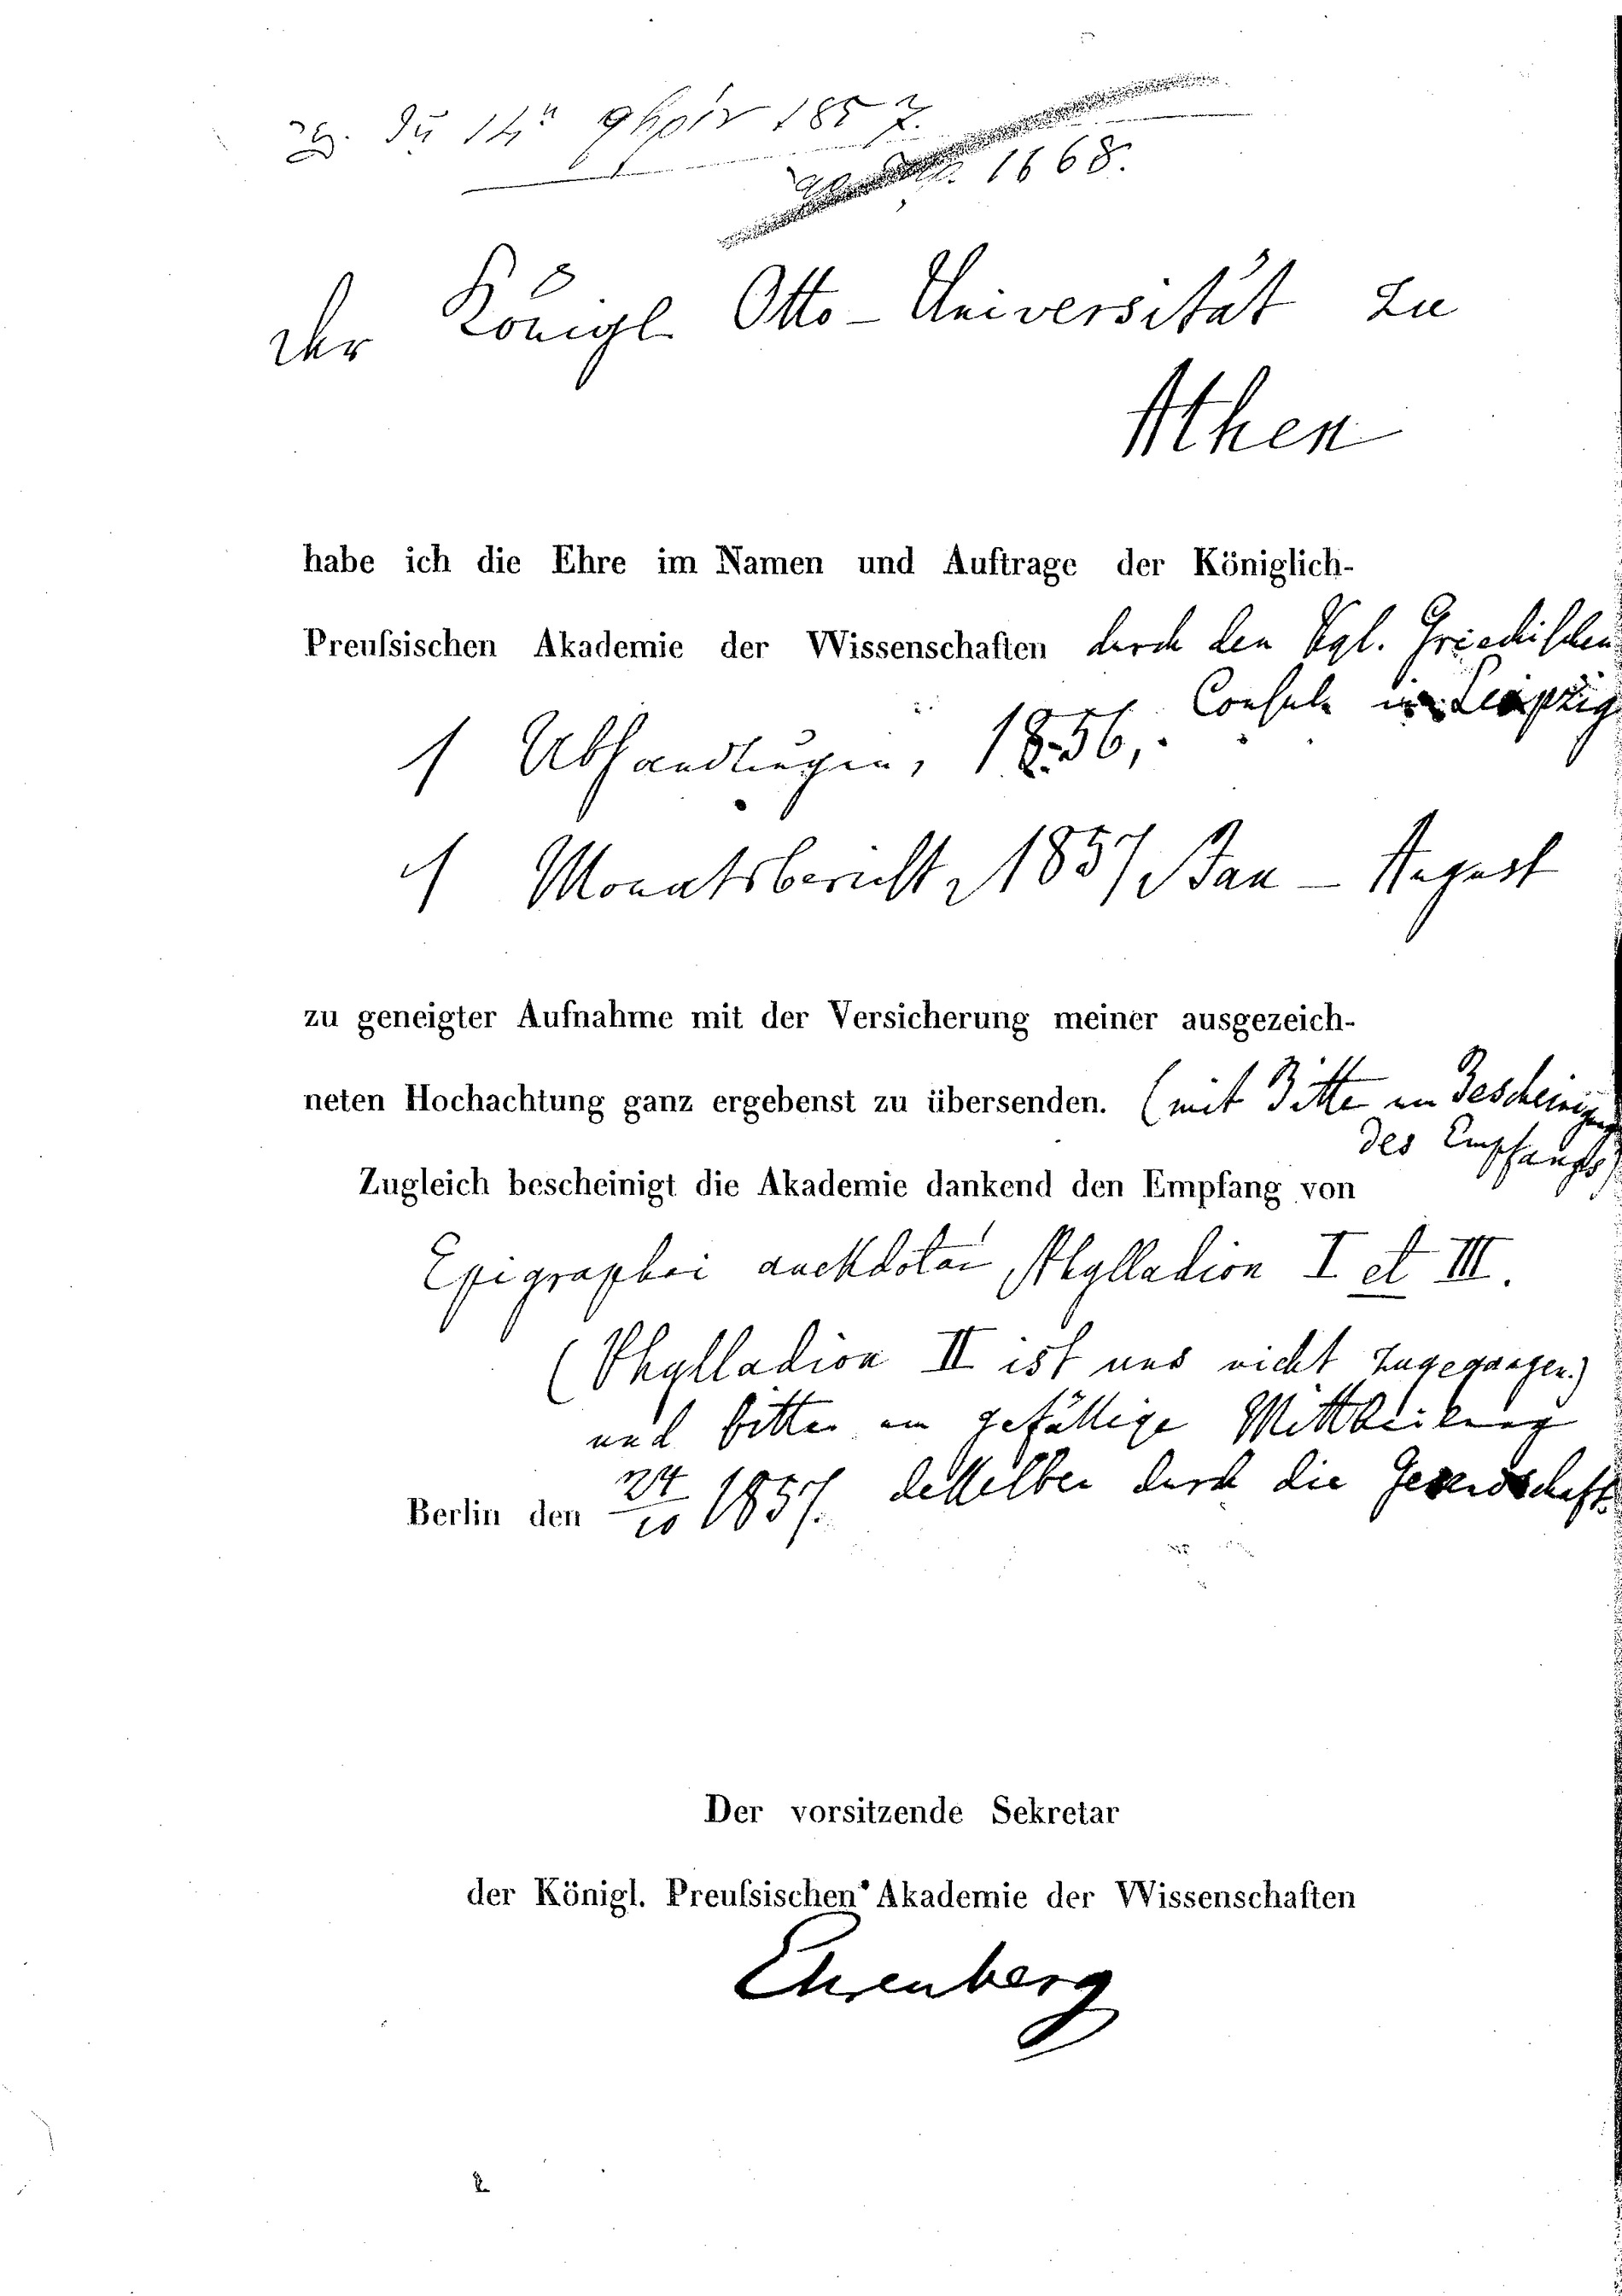 1857.
1668.
Der Königl. Otto-Universität zu
Athen
habe ich die Ehre im Namen und Auftrage der Königlich-
Preuſsischen Akademie der Wissenschaften durch den Kgl. Griechischen
Consul in Leipzig
1 Abhandlungen, 1856,
Monatsbericht 1857 Jan – August
zu geneigter Aufnahme mit der Versicherung meiner ausgezeich-
neten Hochachtung ganz ergebenst zu übersenden. (mit Bitte um Bescheinigung
des Empfangs)
Zugleich bescheinigt die Akademie dankend den Empfang von
Epigraphai anekdotai Phylladion I et III.
(Phylladion II ist uns nicht zugegangen.)
und bitten um gefällige Mittheilung
desselben durch die Gesandschaft.
Berlin den 24/10 1857.
Der vorsitzende Sekretar
der Königl. Preuſsischen Akademie der Wissenschaften
Ehrenberg